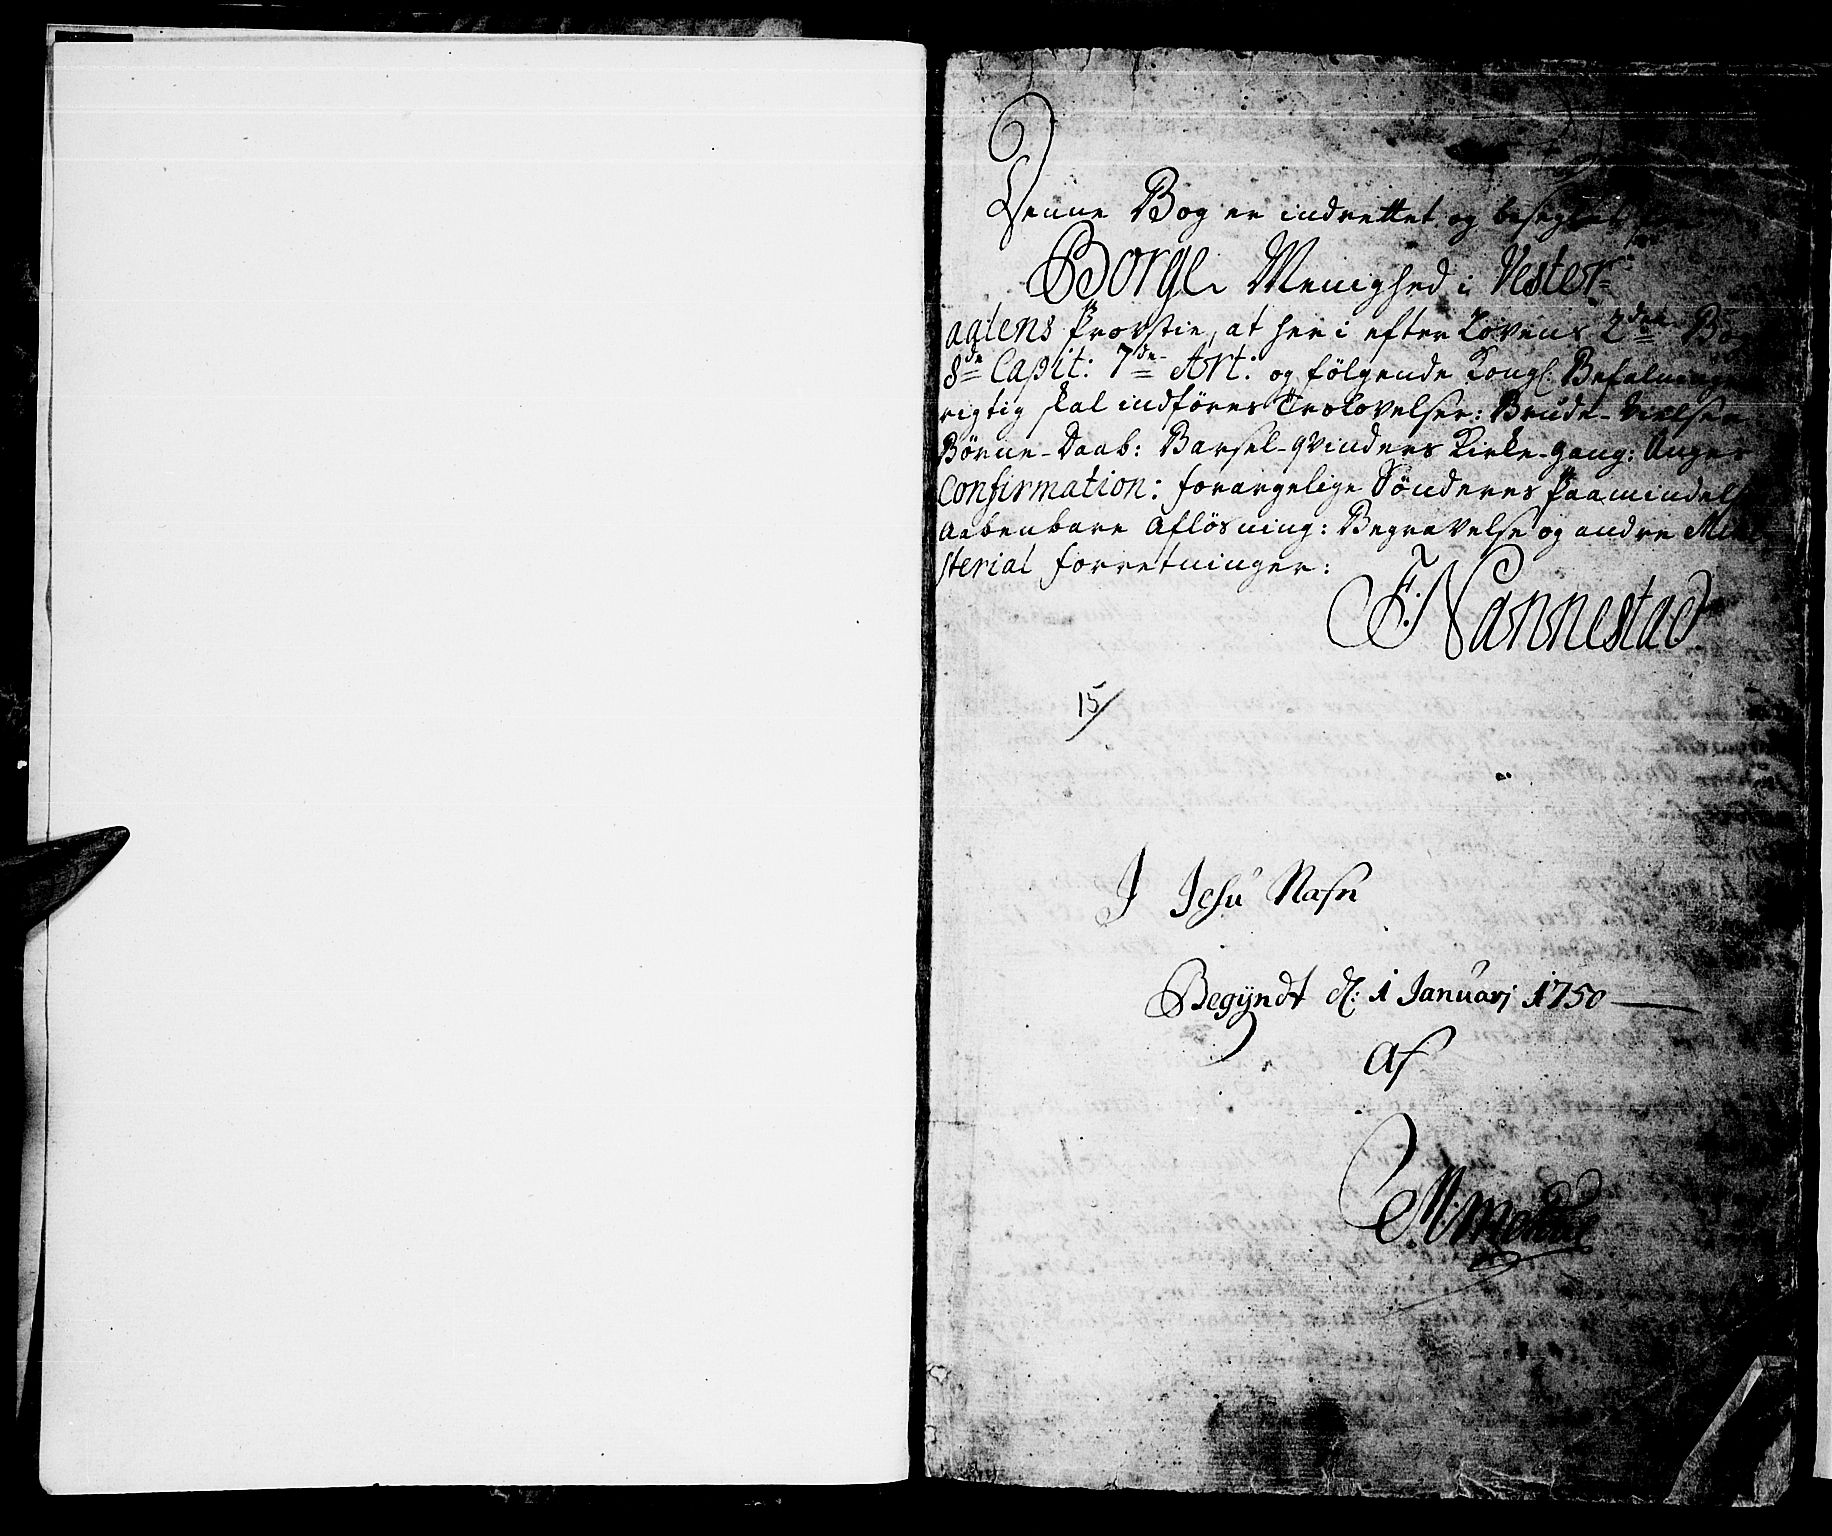 Denne Bog er indrettet og beseglet for
Borge Menighed i Vester-
aalens Provstie, at her i efter Lovens 2den Bog
8de Capit: 7de Art: og følgende Kongl. Befalninger
rigtig skal indføres Trolovelser: Brude-Vielser
Børne-Daab: Barsel-qvinders Kirke-gang: Unges
Confirmation: forargelige Sønderes Paamindelse
Aabenbare Afløsning: Begravelse og andre Mini
sterial forretninger:
F. Nannestad
15/
J Jesu Nafn
Begyndt d: 1 Januarj 1750
Af